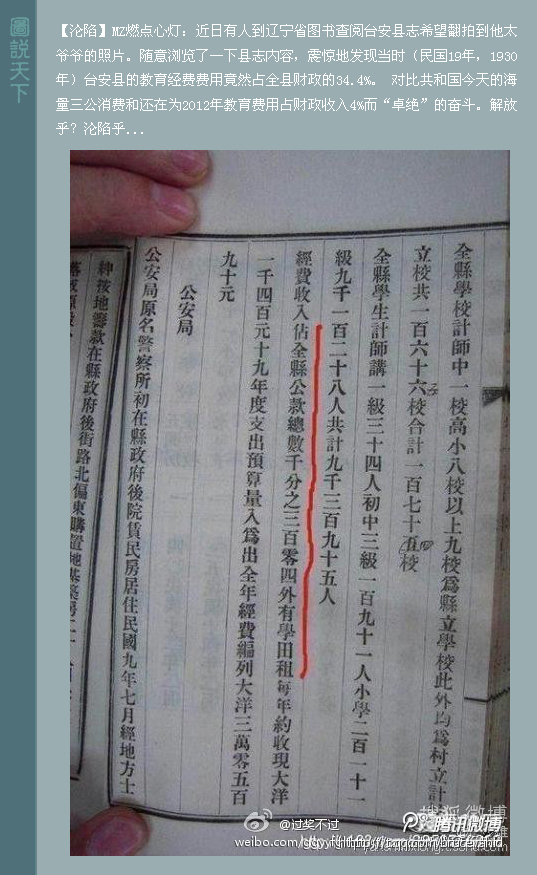 圖説天下
【沦陷】MZ燃点心灯：近日有人到辽宁省图书查阅台安县志希望翻拍到他太
爷爷的照片。随意浏览了一下县志内容，震惊地发现当时（民国19年，1930
年）台安县的教育经费费用竟然占全县财政的34.4%。 对比共和国今天的海
量三公消费和还在为2012年教育费用占财政收入4%而“卓绝”的奋斗。解放
乎？沦陷乎...
全縣學校計師中一校高小八校以上九校爲縣立學校此外均爲村立計
立校共一百六十六校合計一百七十五校
全縣學生計師講一級三十四人初中三級一百九十一人小學二百一十一
級九千一百二十八人共計九千三百九十五人
經費收入佔全縣公款總數千分之三百零四外有學田租每年約收現大洋
一千四百元十九年度支出預算量入爲出全年經費編列大洋三萬零五百
九十元
公安局
公安局原名警察所初在縣政府後院賃民房居住民國九年七月經地方士
紳按地籌款在縣政府後街路北偏東購置地基築房二十
搜狐微博
@过奖不过
腾讯微博